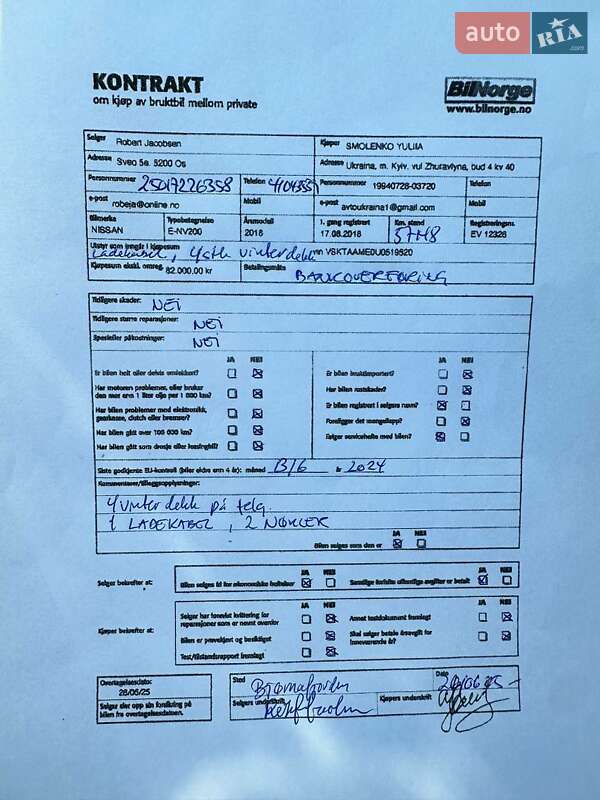 auto RIA.com
KONTRAKT
om kjøp av bruktbil mellom private
BilNorge
www.bilnorge.no
Selger Robert Jacobsen Kjøper SMOLENKO YULIIA
Adresse Sveo 5a. 5200 Os Adresse Ukraina, m. Kyiv, vul Zhuravlyna, bud 4 kv 40
Personnummer Telefon Personnummer 19940726-03720 Telefon
e-post robeja@online.no Mobil e-post avtoukraina1@gmail.com Mobil
Bilmerke Typebetegnelse Årsmodell 1. gang registrert Km. stand Registreringsnr.
NISSAN E-NV200 2018 17.08.2018 EV 12326
Utstyr som inngår i kjøpesum
Ladekabel, 4 stk vinterdekk VSKTAAME0U0519520
Kjøpesum ekskl. omreg. 82.000,00 kr Betalingsmåte BANKOVERFØRING
Tidligere skader: NEI
Tidligere større reparasjoner: NEI
Spesielle påkostninger: NEI
JA NEI JA NEI
Er bilen helt eller delvis omlakkert? Er bilen bruktimportert?
Har motoren problemer, eller bruker den mer enn 1 liter olje per 1 000 km? Har bilen rustskader?
Er bilen registrert i selgers navn?
Har bilen problemer med elektronikk, girkasse, clutch eller bremser? Foreligger det mangellapp?
Har bilen gått over 100 000 km? Følger servicehefte med bilen?
Har bilen gått som drosje eller leasingbil?
Siste godkjente EU-kontroll (biler eldre enn 4 år): måned 13/6 år 2024
Kommentarer/tilleggsopplysninger:
4 vinterdekk på felg.
1 LADEKABEL, 2 NØKLER
Bilen selges som den er
JA NEI
JA NEI JA NEI
Selger bekrefter at: Bilen selges fri for økonomiske heftelser Samtlige forfalte offentlige avgifter er betalt
JA NEI JA NEI
Kjøper bekrefter at: Selger har forevist kvittering for reparasjoner som er nevnt ovenfor Annet testdokument fremlagt
Bilen er prøvekjørt og besiktiget Skal selger betale årsavgift for inneværende år?
Test/tilstandsrapport fremlagt
Overtagelsesdato: Sted Dato
28/06/25 Bjørnafjorden
Selger sier opp sin forsikring på bilen fra overtagelsesdatoen. Selgers underskrift Kjøpers underskrift